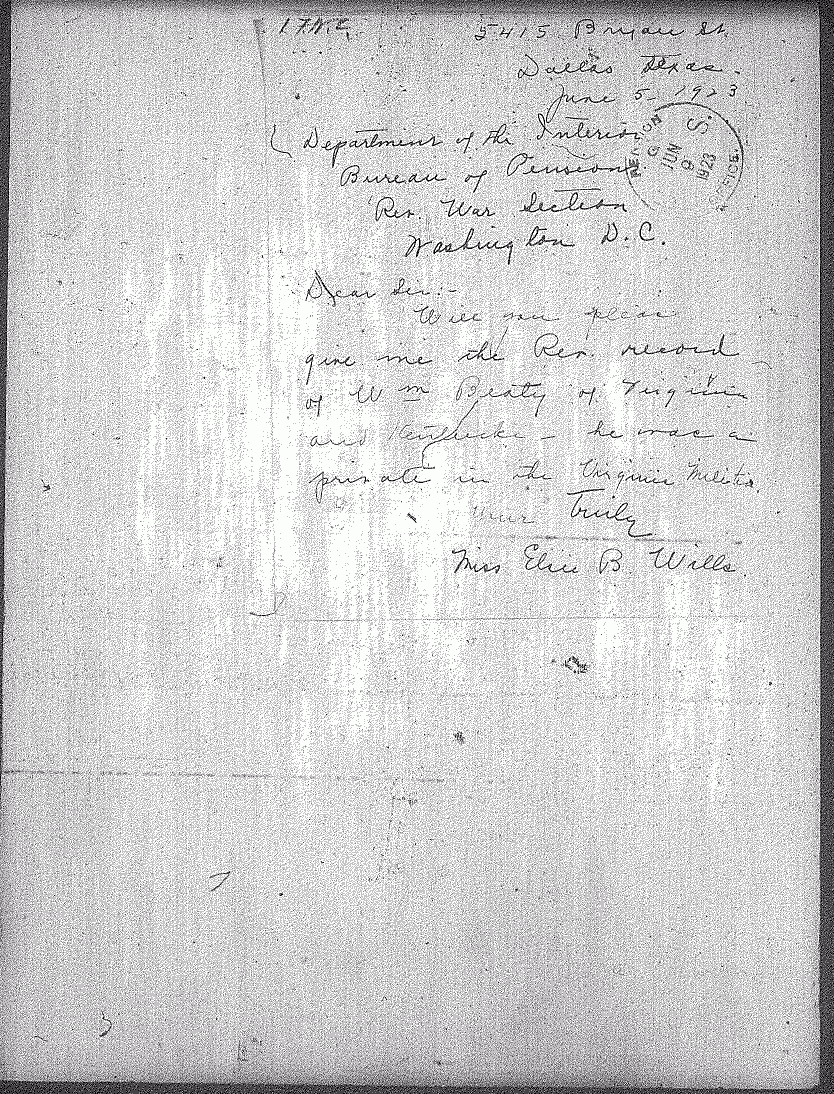 5415 Bryan St.
Dallas Texas.
June 5 - 1923
Department of the Interior
Bureau of Pensions
Rev. War Section
Washington D.C.
U.S. PENSION OFFICE. JUN 9 1923
Dear Sir:-
Will you please
give me the Rev. record
of Wm Beaty of Virginia
and Kentucky - he was a
private in the Virginia Militia.
Your Truly
Miss Elsie B. Wills.